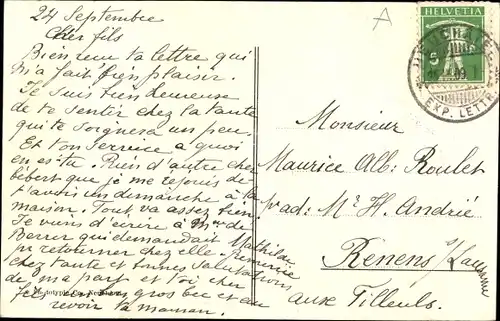 24 Septembre
Cher fils
Bien reçu ta lettre qui
m'a fait bien plaisir.
Je suis bien heureuse
de te sentir chez ta tante
qui te soignera un peu.
Et ton service a quoi
en es-tu. Rien d'autre cher
bébert que je me rejouis de
t'avoir un dimanche à la
maison. Tout va assez bien.
Je viens d'écrire à Mme de
Berrer qui demandait Mathilde
pr retourner chez elle. Remercie
chez tante et bonnes salutations
de ma part et toi cher
fils gros bec et au
revoir ta maman.
A
HELVETIA
5
NEUCHATEL
09
EXP. LETTR.
Monsieur
Maurice Alb: Roulet
pr ad: Mr H. Andrié
Renens s/ Lausanne
aux Tilleuls.